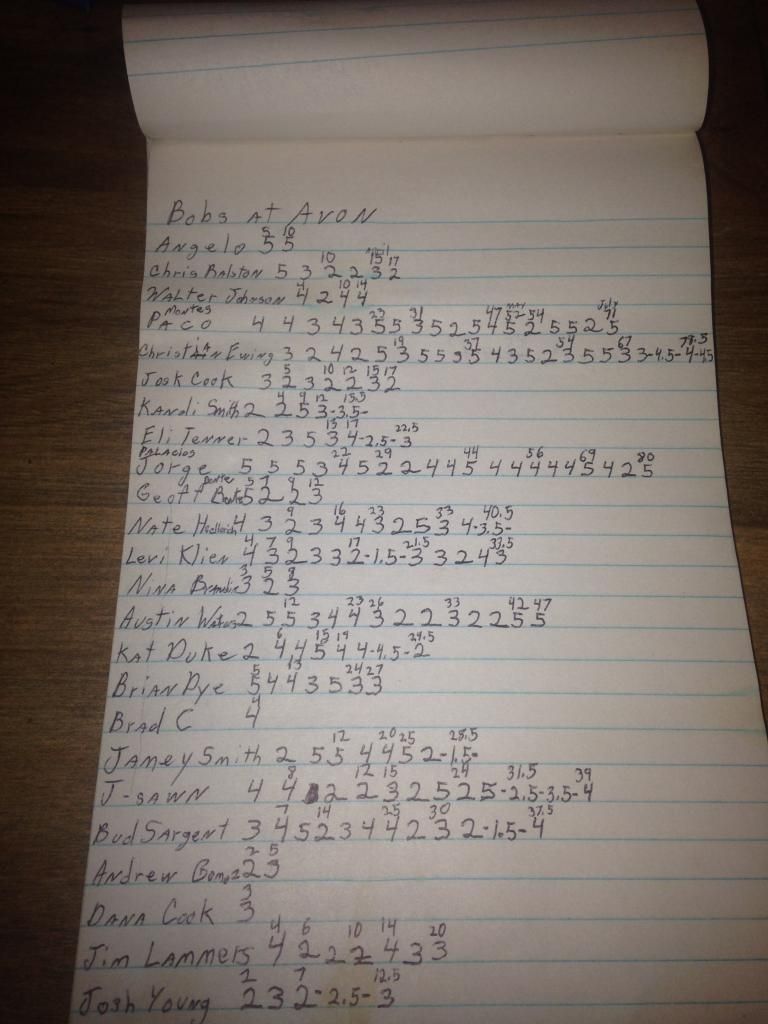 Bobs AT AVON
5 10
Angelo 5 5
10 15 17
Chris Ralston 5 3 2 2 3 2
4 10 14
Walter Johnson 4 2 4 4
Montes 23 31 47 52 54 July 71
PACO 4 4 3 4 3 5 5 3 5 2 5 4 5 2 5 5 2 5
19 37 54 67 78.5
Christian Ewing 3 2 4 2 5 3 5 5 9 5 4 3 5 2 3 5 5 3 3-4.5-4-4.5
5 10 12 15 17
Josh Cook 3 2 3 2 2 3 2
4 9 12 15.5
Kandi Smith 2 2 5 3-3.5-
13 17 22.5
Eli Tenner 2 3 5 3 4-2.5-3
PALACIOS 22 29 44 56 69 80
Jorge 5 5 5 3 4 5 2 2 4 4 5 4 4 4 4 4 5 4 2 5
5 7 9 12
Geoff 5 2 2 3
9 16 23 33 40.5
Nate 4 3 2 3 4 4 3 2 5 3 4-3.5-
4 7 9 17 21.5 33.5
Levi Klien 4 3 2 3 3 2-1.5-3 3 2 4 3
3 5 8
Nina 3 2 3
12 23 26 33 42 47
Austin 2 5 5 3 4 4 3 2 2 3 2 2 5 5
6 15 19 29.5
Kat Duke 2 4 4 5 4 4-4.5-2
5 13 24 27
Brian Pye 5 4 4 3 5 3 3
4
Brad C 4
12 20 25 28.5
Jamey Smith 2 5 5 4 4 5 2-1.5-
8 12 15 24 31.5 39
J-SAWN 4 4 2 2 3 2 5 2 5-2.5-3.5-4
7 14 25 30 37.5
Bud Sargent 3 4 5 2 3 4 4 2 3 2-1.5-4
2 5
Andrew 2 3
3
Dana Cook 3
4 6 10 14 20
Jim Lammers 4 2 2 2 4 3 3
2 7 12.5
Josh Young 2 3 2-2.5-3